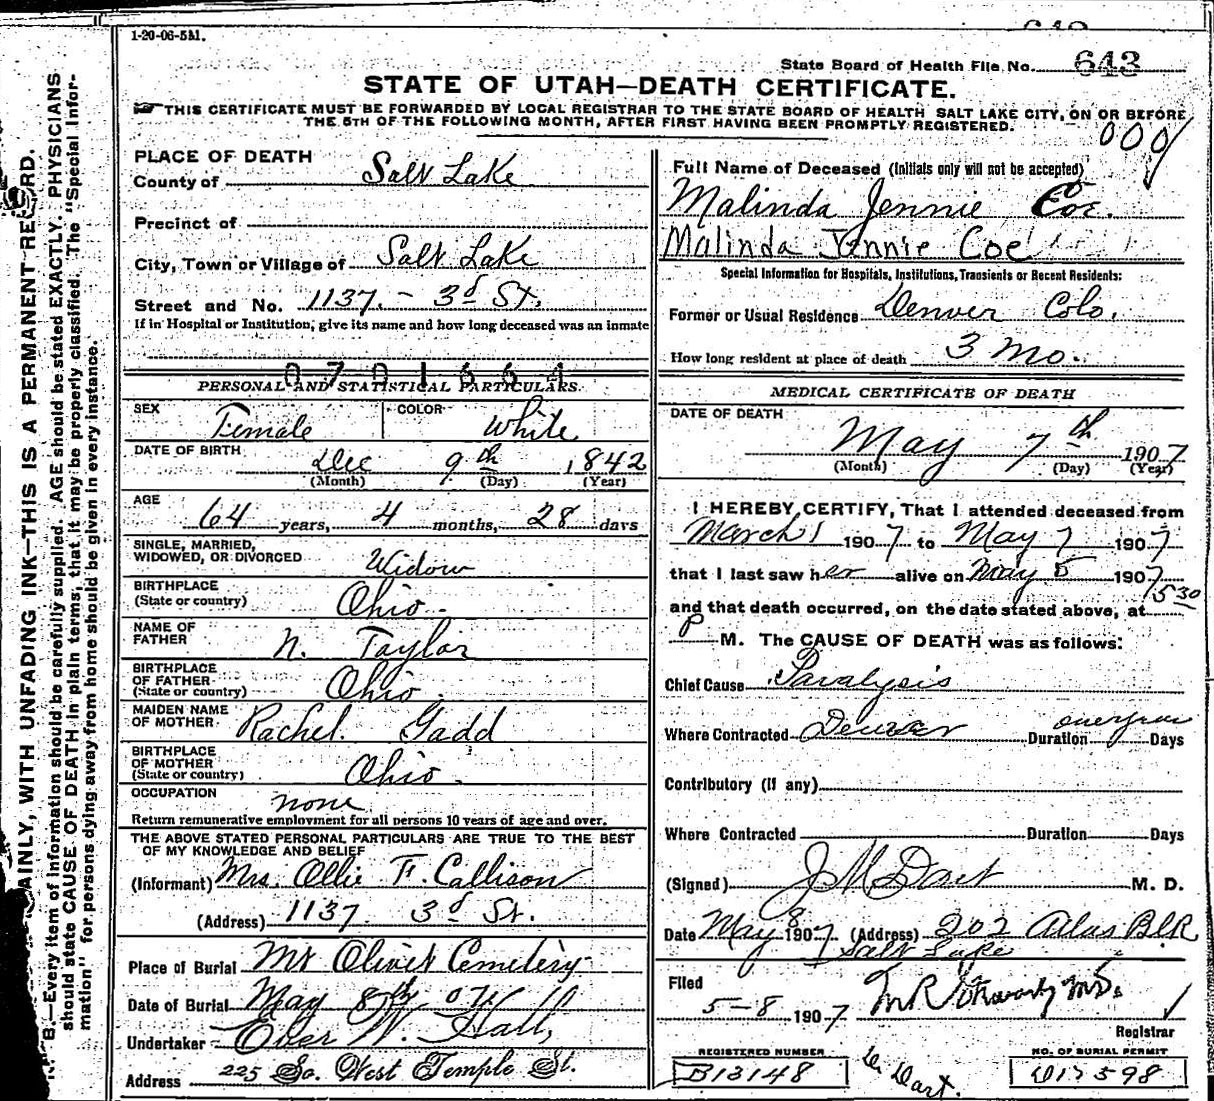 1-20-06-5M.
State Board of Health File No. 643
STATE OF UTAH—DEATH CERTIFICATE.
THIS CERTIFICATE MUST BE FORWARDED BY LOCAL REGISTRAR TO THE STATE BOARD OF HEALTH SALT LAKE CITY, ON OR BEFORE
THE 5TH OF THE FOLLOWING MONTH, AFTER FIRST HAVING BEEN PROMPTLY REGISTERED.
000
PLACE OF DEATH
County of Salt Lake
Precinct of
City, Town or Village of Salt Lake
Street and No. 1137 - 3d St.
If in Hospital or Institution, give its name and how long deceased was an inmate
0701664
PERSONAL AND STATISTICAL PARTICULARS.
SEX Female COLOR White
DATE OF BIRTH Dec 9th 1842
(Month) (Day) (Year)
AGE
64 years, 4 months, 28 days
SINGLE, MARRIED,
WIDOWED, OR DIVORCED Widow
BIRTHPLACE
(State or country) Ohio
NAME OF
FATHER N. Taylor
BIRTHPLACE
OF FATHER
(State or country) Ohio
MAIDEN NAME
OF MOTHER Rachel Gadd
BIRTHPLACE
OF MOTHER
(State or country) Ohio
OCCUPATION none
Return remunerative employment for all persons 10 years of age and over.
THE ABOVE STATED PERSONAL PARTICULARS ARE TRUE TO THE BEST
OF MY KNOWLEDGE AND BELIEF
(Informant) Mrs. Ollie F. Callison
(Address) 1137 3d St.
Place of Burial Mt Olivet Cemetery
Date of Burial May 8th 07
Undertaker Eber W. Hall,
Address 225 So. West Temple St.
Full Name of Deceased (Initials only will not be accepted)
Malinda Jennie Coe.
Malinda Jennie Coe
Special Information for Hospitals, Institutions, Transients or Recent Residents:
Former or Usual Residence Denver Colo.
How long resident at place of death 3 Mo.
MEDICAL CERTIFICATE OF DEATH
DATE OF DEATH
May 7th 1907
(Month) (Day) (Year)
I HEREBY CERTIFY, That I attended deceased from
March 1 1907 to May 7 1907
that I last saw her alive on May 5 1907
and that death occurred, on the date stated above, at 5 30
P M. The CAUSE OF DEATH was as follows:
Chief Cause Paralysis
Where Contracted Denver Duration one year Days
Contributory (if any)
Where Contracted Duration Days
(Signed) J M Dart M. D.
Date May 8 1907 (Address) 202 Atlas Blk
Salt Lake
Filed
5-8 1907
Registrar
REGISTERED NUMBER
B13148
Dr Dart.
NO. OF BURIAL PERMIT
598
AINLY, WITH UNFADING INK—THIS IS A PERMANENT RECORD.
N. B.—Every item of information should be carefully supplied. AGE should be stated EXACTLY. PHYSICIANS
should state CAUSE OF DEATH in plain terms, that it may be properly classified. The "Special Infor-
mation" for persons dying away from home should be given in every instance.